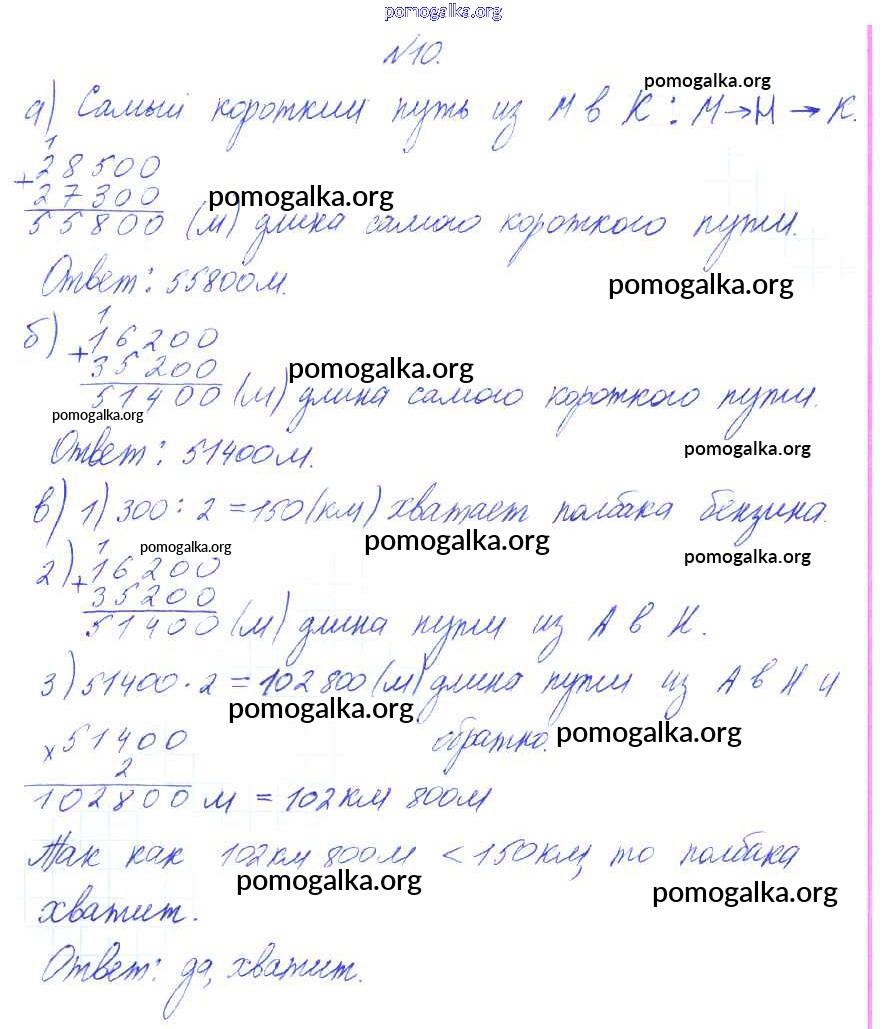 pomogalka.org
№10.
pomogalka.org
а) Самый короткий путь из М в К: М→Н→К.
1
+28500
27300 pomogalka.org
55800 (м) длина самого короткого пути.
Ответ: 55800м. pomogalka.org
б) 1
+16200
35200 pomogalka.org
51400 (м) длина самого короткого пути.
pomogalka.org
Ответ: 51400м. pomogalka.org
в) 1) 300:2=150(км) хватает полбака бензина.
1 pomogalka.org pomogalka.org pomogalka.org
2) +16200
35200
51400 (м) длина пути из А в Н.
3) 51400·2=102800(м) длина пути из А в Н и
pomogalka.org
×51400 обратно. pomogalka.org
2
102800 м = 102км 800м
Так как 102км 800м <150км, то полбака
pomogalka.org pomogalka.org
хватит.
Ответ: да, хватит.